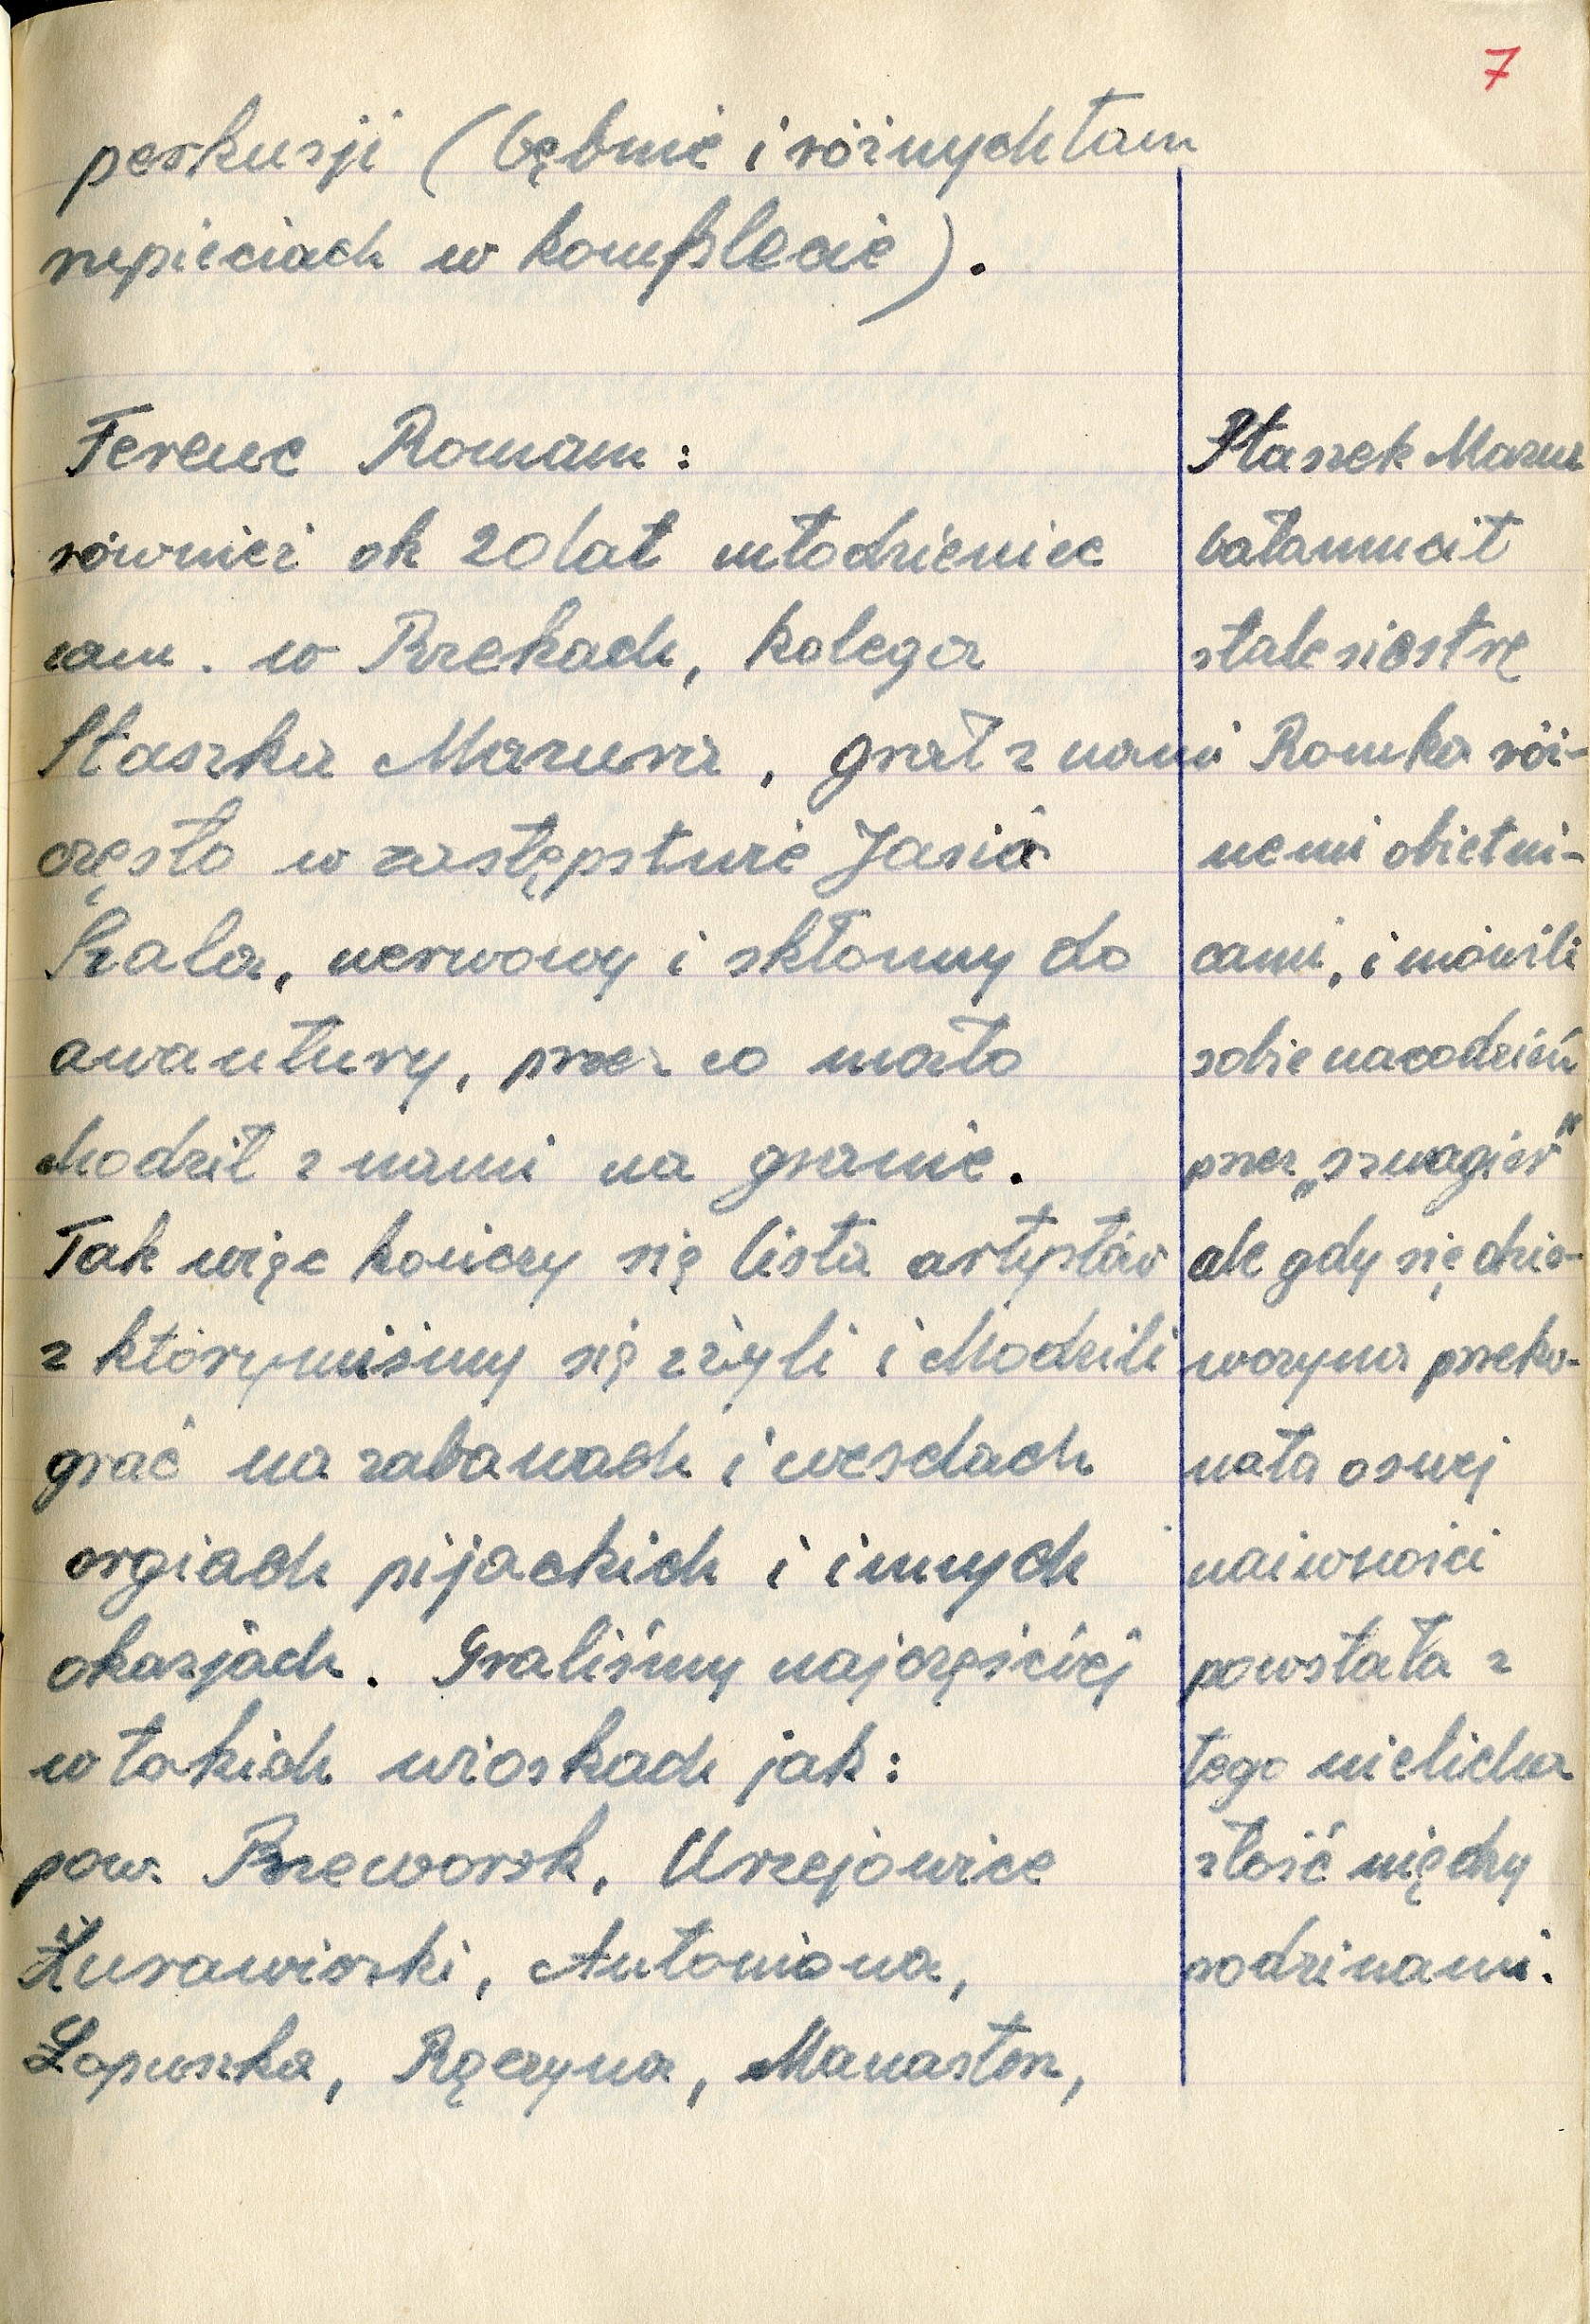 7
perkusji (bębnie i różnych tam
rupieciach w komplecie).
Ferenc Roman:
również ok 20 lat młodzieniec
zam. w Brzekach, kolega
Staszka Mazura, grał z nami
często w zastępstwie Jasia
Szala, nerwowy i skłonny do
awantury, przez co mało
chodził z nami na granie.
Tak więc kończy się lista artystów
z którymiśmy się zżyli i chodzili
grać na zabawach i weselach
orgiach pijackich i innych
okazjach. Graliśmy najczęściej
w takich wioskach jak:
pow. Przeworsk, Urzejowice
Żurawiczki, Antoniona,
Łopuszka, Rączyna, Manasterz,
Staszek Mazur
bałamucił
stale siostrę
Romka róż-
nemi obietni-
cami, i mówili
sobie nacodzień
przez „szwagier"
ale gdy się dzie-
wczyna przeko-
nała o swej
naiwności
powstała z
tego nielicha
złość między
rodzinami.